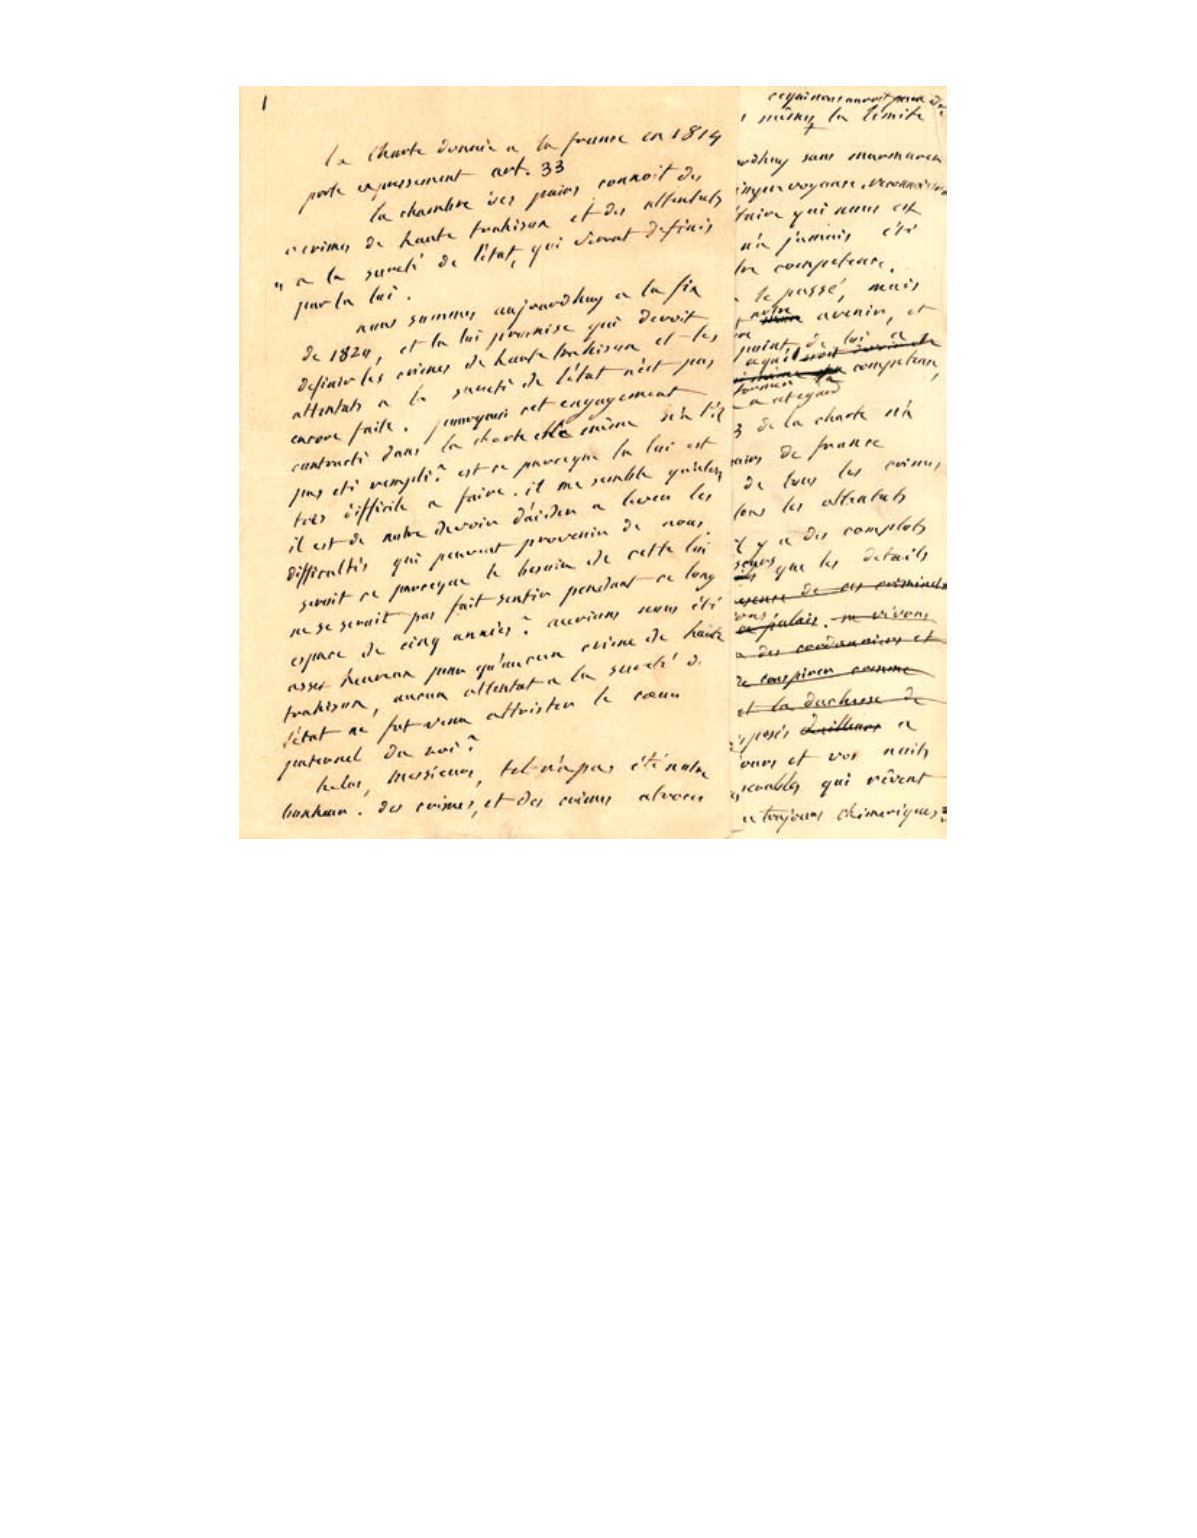 1
la charte donnée a la france en 1814
porte expressement art. 33
la chambre des pairs connoit des
" crimes de haute trahison et des attentats
" a la sureté de l'état, qui seront definis
par la loi.
nous sommes aujourdhuy a la fin
de 1820, et la loi promise qui devoit
definir les crimes de haute trahison et les
attentats a la sureté de l'état n'est pas
encore faite. pourquoi cet engagement
contracté dans la charte elle même n'a t'il
pas eté rempli? est ce parceque la loi est
très difficile a faire. il me semble qu'alors
il est de notre devoir d'aider a lever les
difficultés qui peuvent provenir de nous.
seroit ce parceque le besoin de cette loi
ne se seroit pas fait sentir pendant ce long
espace de cinq années? aurions nous été
assez heureux pour qu'aucun crime de haute
trahison, aucun attentat a la sureté de
l'état ne fut venu attrister le cœur
paternel du roi?
helas, Messieurs, tel n'a pas été notre
bonheur. des crimes, et des crimes atroces
la limite
sans murmurer
qui nous est
n'a jamais été
competence.
le passé, mais
notre avenir, et
point de loi a
competence,
a cet egard
3 de la charte n'a
pairs de france
de tous les crimes
tous les attentats
il y a des complots
que les details
de ces criminels
ce palais. ne vivons
a des cordonniers et
conspirer comme
et la duchesse de
d'ailleurs a
jours et vos nuits
qui rêvent
toujours chimeriques